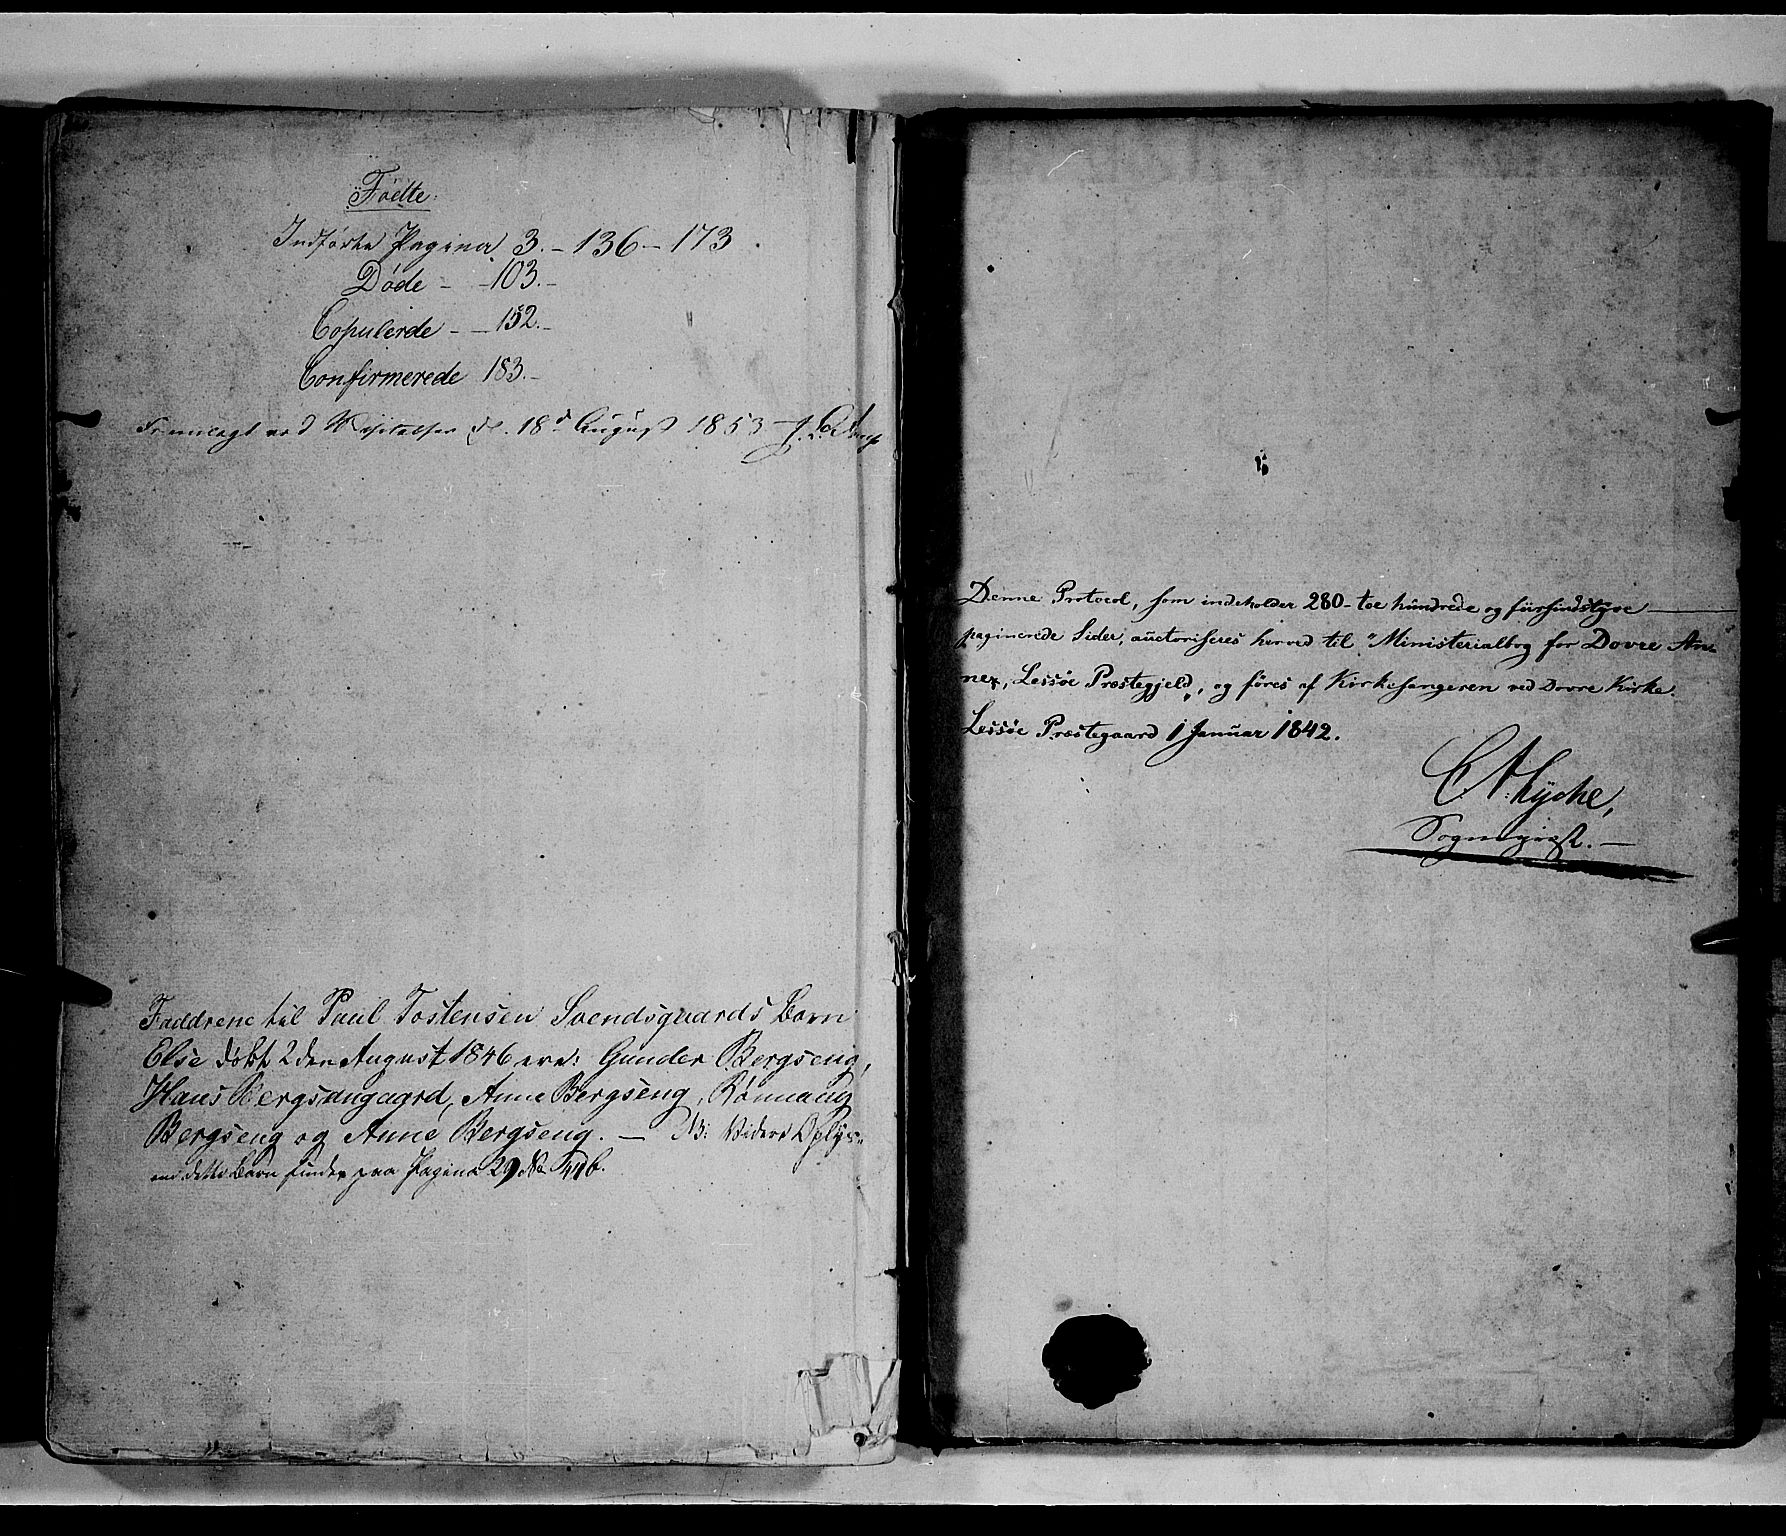 Fødte:
Indførte Pagina 3. – 136 – 173.
Døde – – 103. –
Copulerde – – 152. –
Confirmerede 183. –
Fremlagt ved Visitatsen d. 18d August 1853
Faddrene til Paul Tostensen Svendsgaards Barn
Else døbt 2den August 1846 ere: Gunder Bergseng,
Hans Bergseng, Anne Bergseng, Rønnaug
Bergseng og Anne Bergseng. — NB: Videre Oplys-
om dette Barn findes paa Pagina 29 No
Denne Protocol, som indeholder 280 – toe hundrede og fiirsindstyve —
paginerede Sider, auctoriseres herved til "Ministerialbog for Dovre An-
nex, Lessøe Præstegjeld", og føres af Kirkesangeren ved Dovre Kirke.
Lessøe Præstegaard 1 Januar 1842.
Sognepræst. —